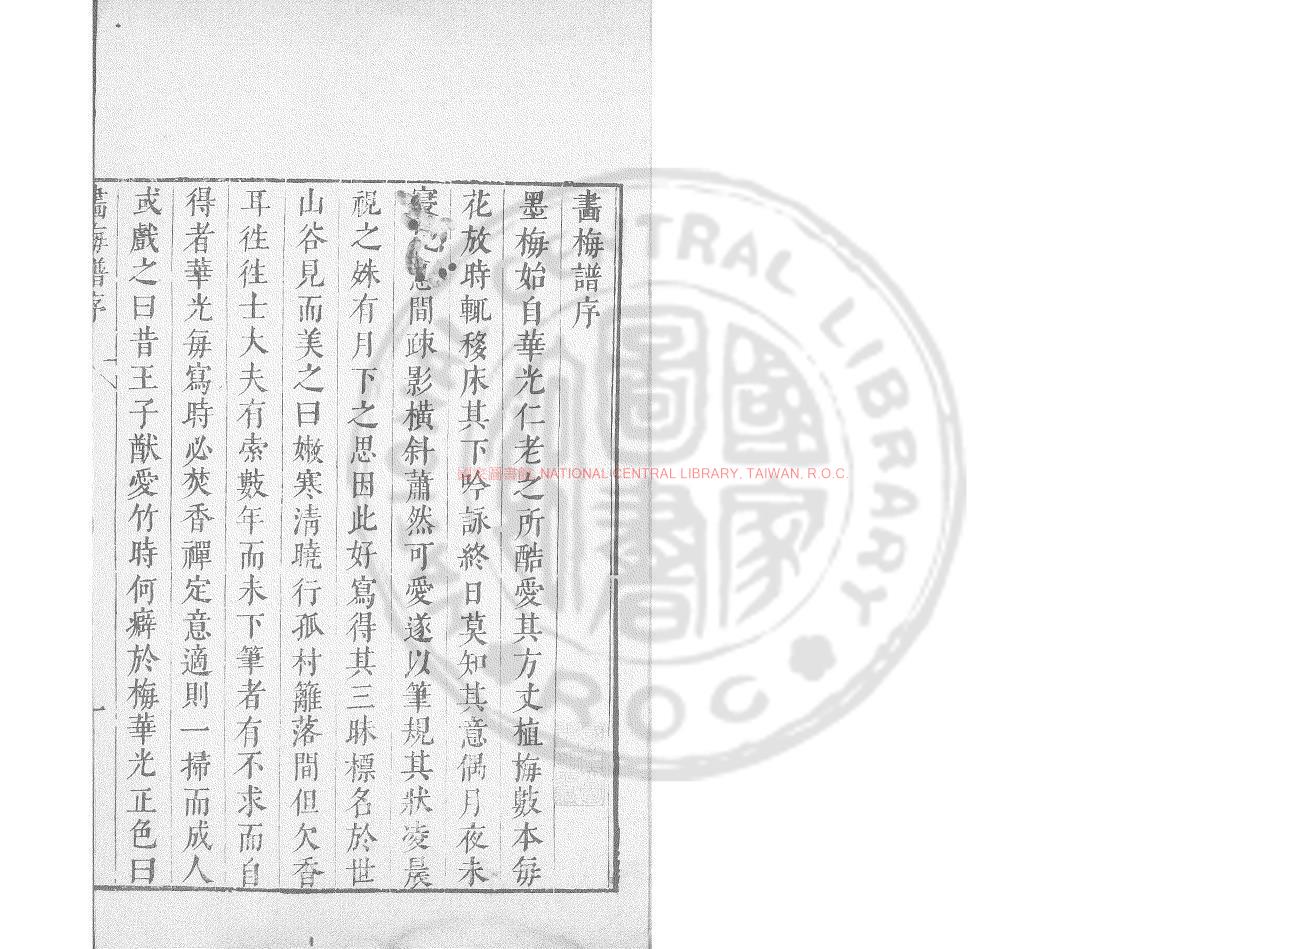 畵梅譜序
墨梅始自華光仁老之所酷愛其方丈植梅數本毎
花放時輒移床其下吟詠終日莫知其意偶月夜未
寢見窓間疎影橫斜蕭然可愛遂以筆規其狀凌晨
視之姝有月下之思因此好寫得其三昧標名於世
山谷見而美之曰嫩寒淸曉行孤村籬落間但欠香
耳徃徃士大夫有索數年而未下筆者有不求而自
得者華光毎寫時必焚香禪定意適則一掃而成人
或戲之曰昔王子猷愛竹時何癖於梅華光正色曰
畵梅譜序 一
國家圖書館 NATIONAL CENTRAL LIBRARY, TAIWAN, R.O.C.